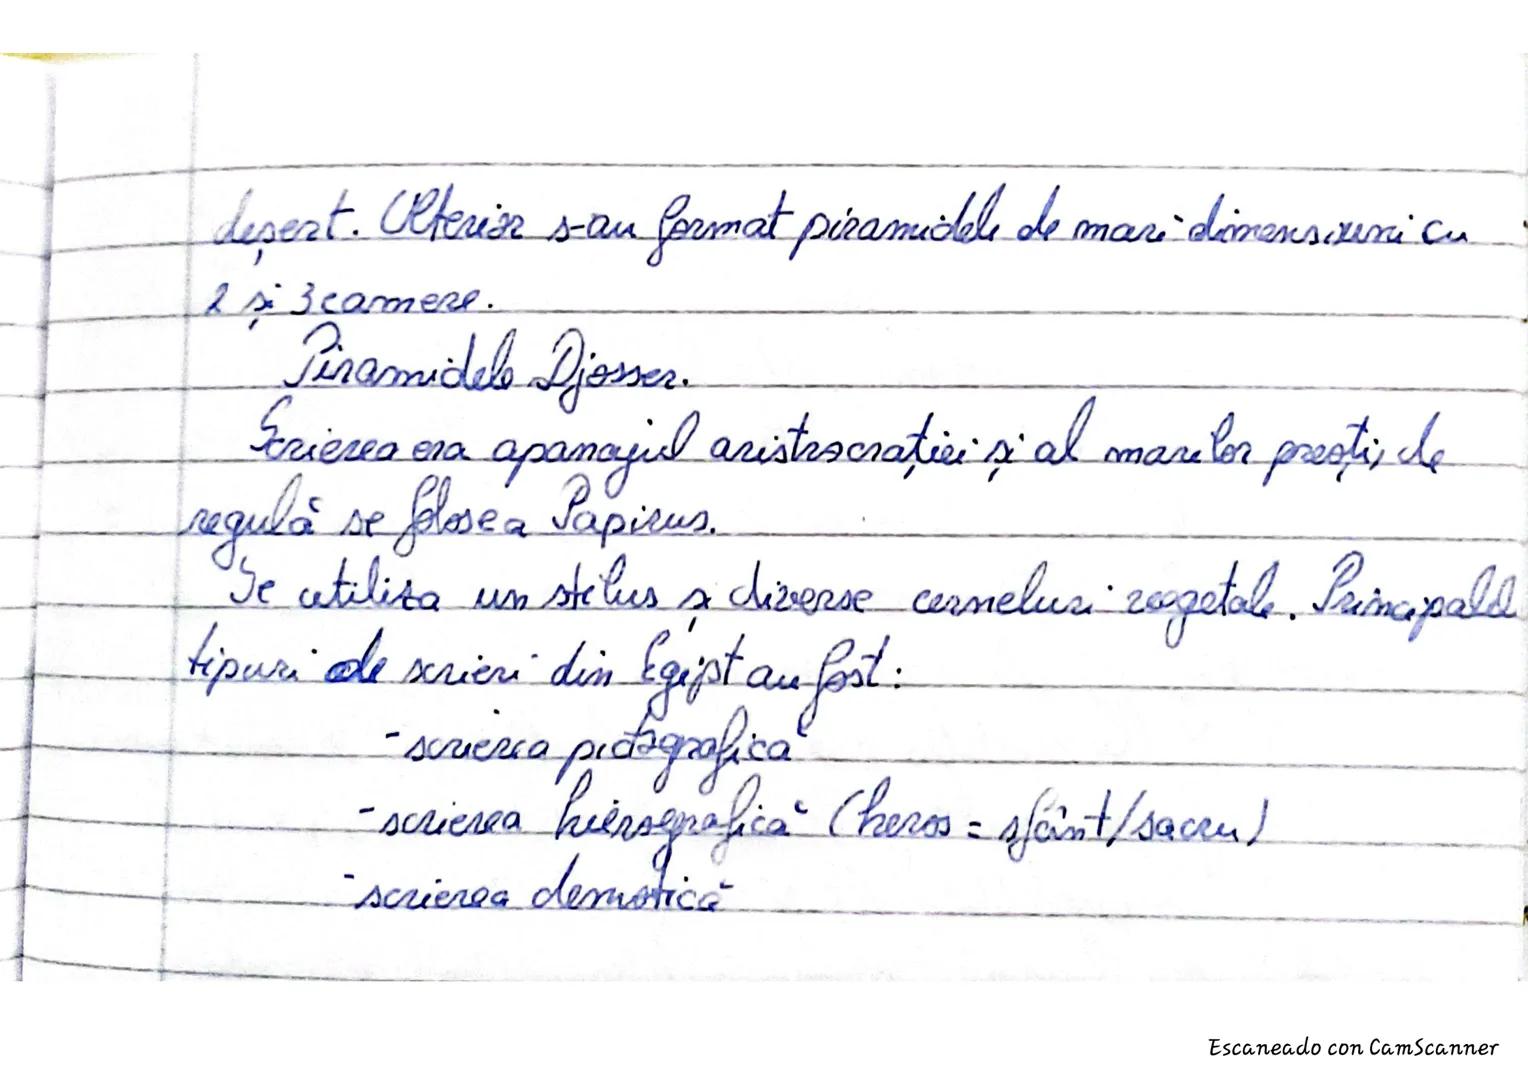 deșert. Ulterior s-au format piramidele de mari dimensiuni cu
2 și 3 camere.
Piramidele Djosser.
Scrierea era apanajul aristrocrației și al marilor preoți, de
regulă se folosea Papirus.
Se utiliza un stilus și diverse cerneluri vegetale. Principalele
tipuri de scrieri din Egipt au fost:
- scrierea pictografică
- scrierea hierografică (heros = sfânt/sacru)
- scrierea demotică
Escaneado con CamScanner